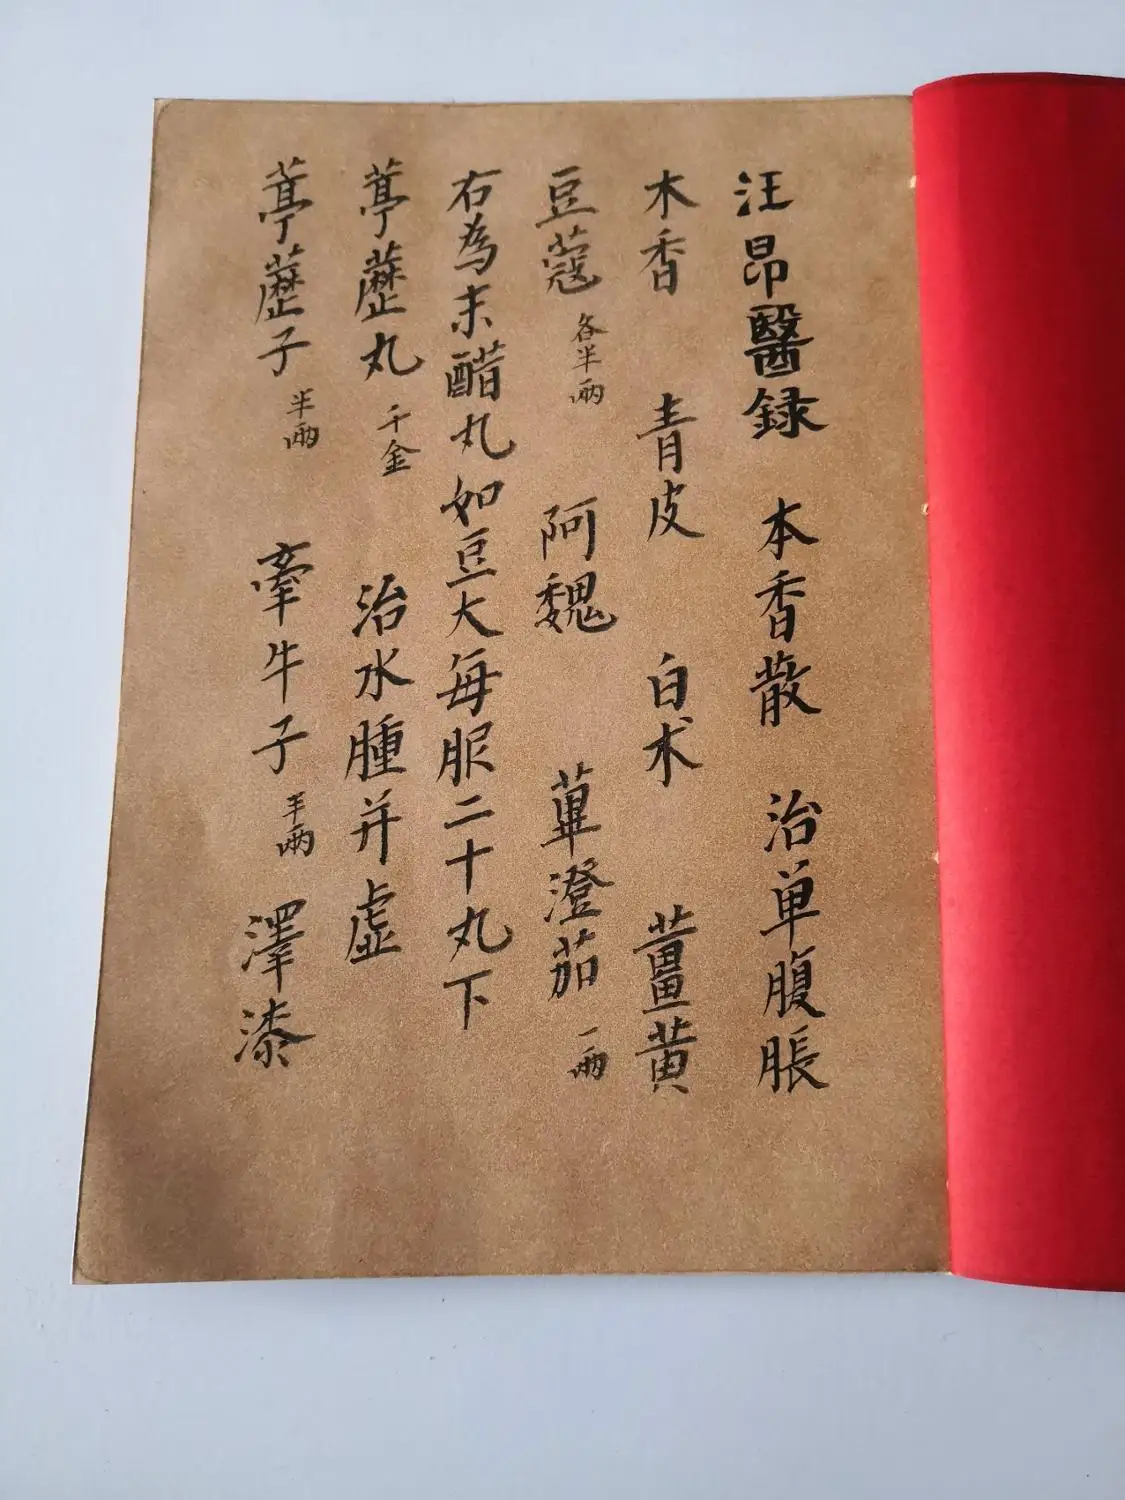 汪昂醫録 本香散 治单腹脹
木香 青皮 白术 薑黄
豆蔻 各半兩 阿魏 蓽澄茄 一兩
右為末醋丸如豆大每服二十丸下
葶藶丸 千金 治水腫并虚
葶藶子 半兩 牽牛子 半兩 澤漆